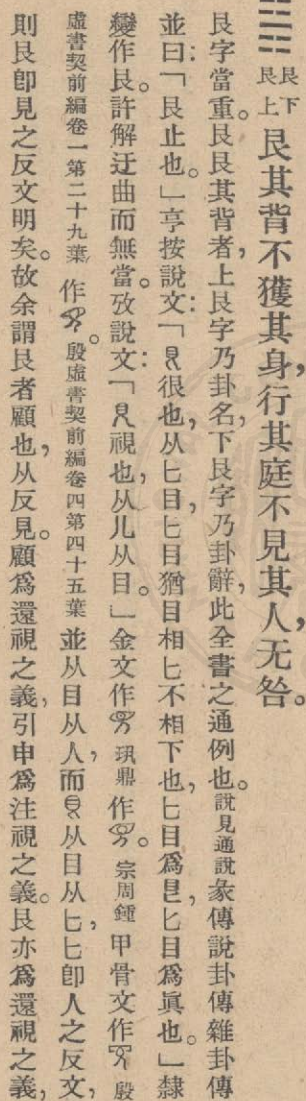 ䷳艮下艮上 艮其背不獲其身，行其庭不見其人，无咎。
艮字當重。艮艮其背者，上艮字乃卦名，下艮字乃卦辭，此全書之通例也。說見通說彖傳說卦傳雜卦傳
並曰：「艮止也。」亨按說文：「很也，从匕目，匕目猶目相匕不相下也，匕目為，匕目為眞也。」隸
變作艮。許解迂曲而無當。攷說文：「視也，从儿从目。」金文作 珙鼎 作。宗周鐘 甲骨文作 殷
虛書契前編卷一第二十九葉 作。殷虛書契前編卷四第四十五葉 並从目从人，而从目从匕，匕卽人之反文，
則艮卽見之反文明矣。故余謂艮者顧也，从反見。顧為還視之義，引申為注視之義。艮亦為還視之義，